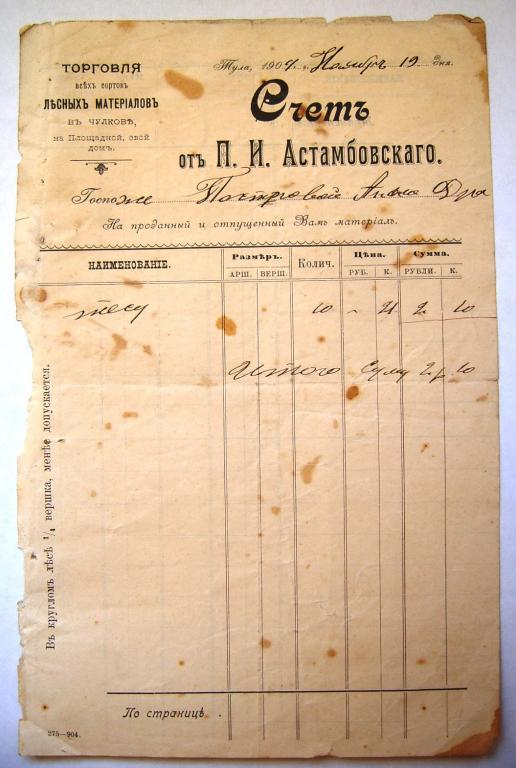 ТОРГОВЛЯ
всѣхъ сортовъ
ЛѢСНЫХЪ МАТЕРІАЛОВЪ
ВЪ ЧУЛКОВѢ,
на Площадной, свой
домъ.
Тула, 1904 г. Ноябрь 19 дня.
Счетъ
отъ П. И. Астамбовскаго.
Госпоже
На проданный и отпущенный Вамъ матеріалъ.
НАИМЕНОВАНІЕ. Размѣръ. Колич. Цѣна. Сумма.
АРШ. ВЕРШ. РУБ. К. РУБЛИ. К.
тесу 10 - 21 2 10
Итого Суму 2 р 10
Въ кругломъ лѣсѣ 1/4 вершка, менѣе допускается.
По страницѣ.
275—904.